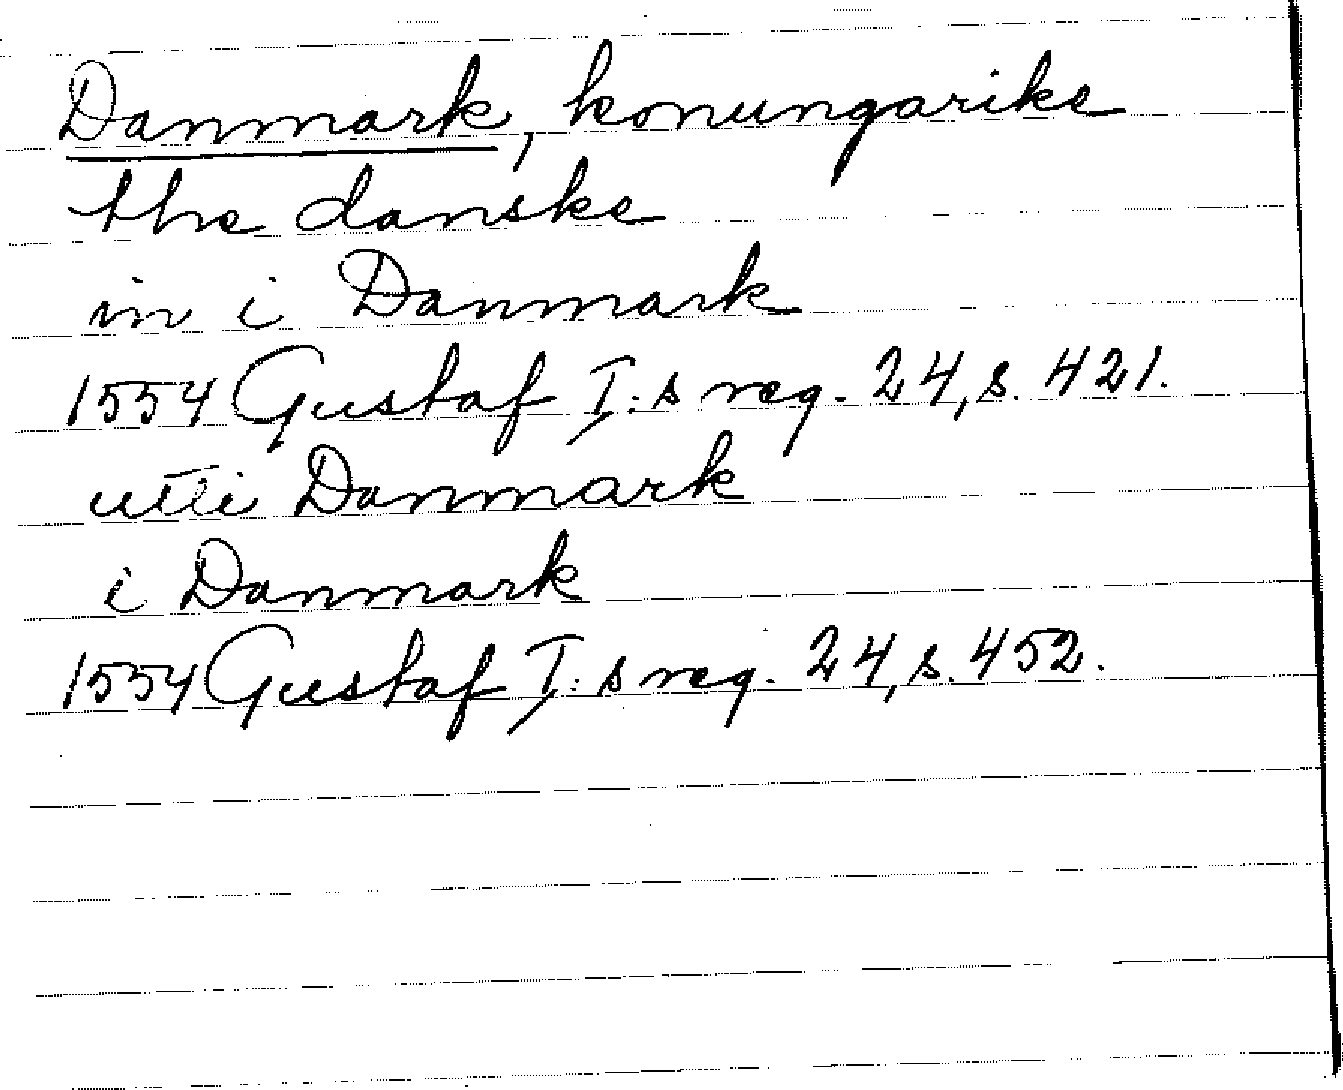 Danmark, konungarike
the danske
in i Danmark
1554 Gustaf I:s reg. 24, s. 421.
utti Danmark
i Danmark
1554 Gustaf I:s reg. 24, s. 452.